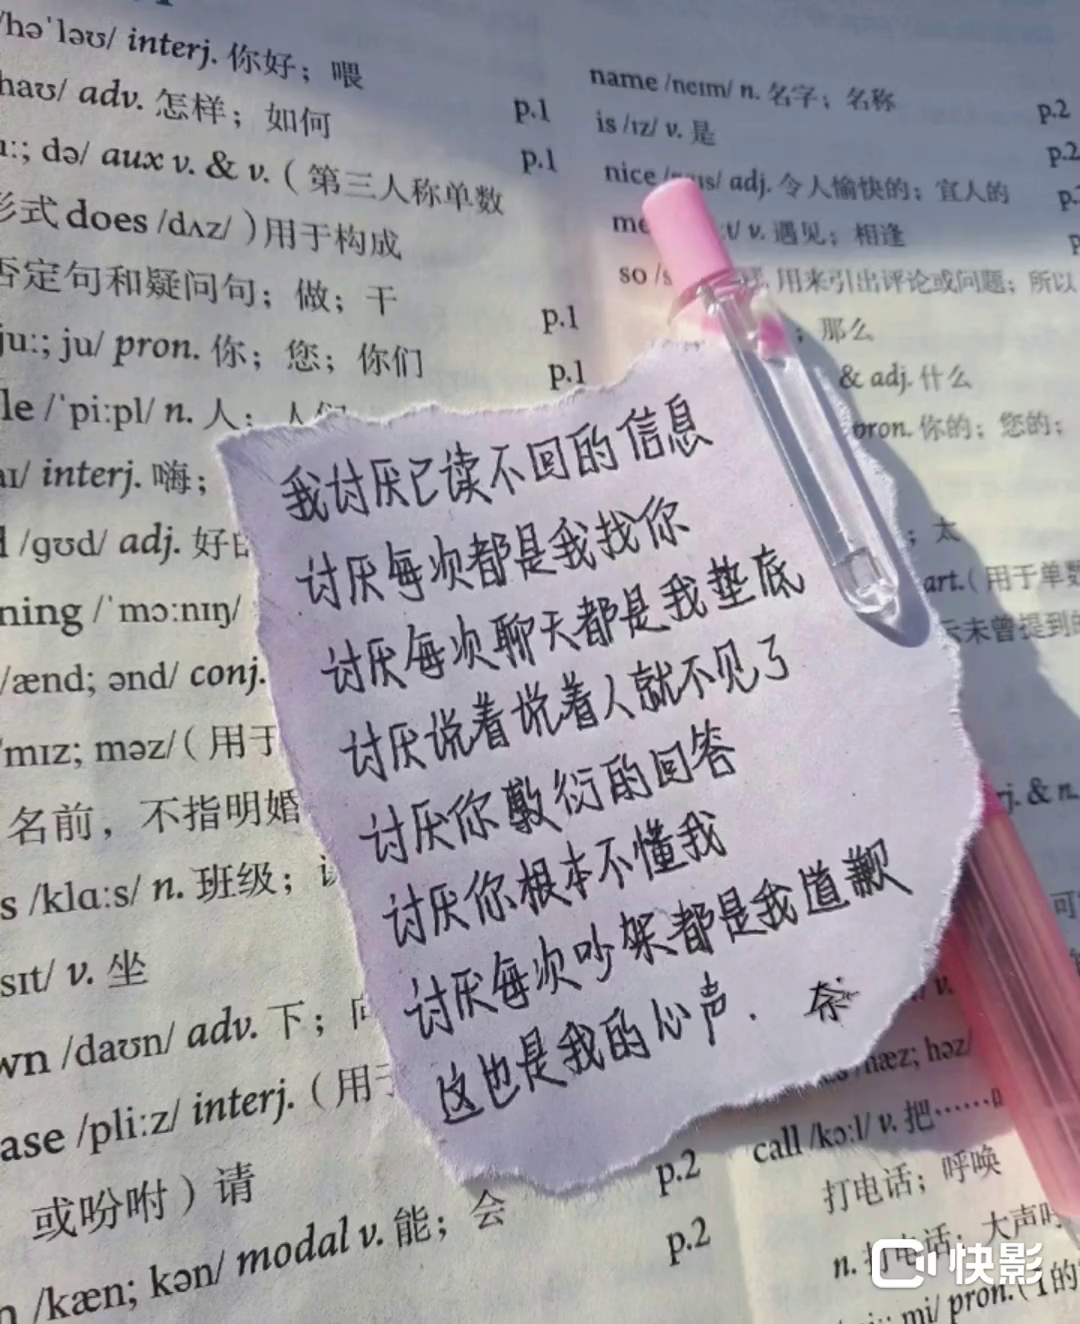 /həˈləʊ/ interj. 你好；喂
haʊ/ adv. 怎样；如何 p.1
uː; də/ aux v. & v.（第三人称单数 p.1
形式 does /dʌz/ ）用于构成
否定句和疑问句；做；干
juː; ju/ pron. 你；您；你们 p.1
le /ˈpiːpl/ n. 人； p.1
aɪ/ interj. 嗨；
d /ɡʊd/ adj.
ning /ˈmɔːnɪŋ/
/ænd; ənd/ conj.
ˈmɪz; məz/（用于
名前，不指明婚
s /klɑːs/ n. 班级；
sɪt/ v. 坐
wn /daʊn/ adv. 下；向
ase /pliːz/ interj.（用于
或吩咐）请 p.2
n /kæn; kən/ modal v. 能；会 p.2
name /neɪm/ n. 名字；名称 p.2
is /ɪz/ v. 是 p.2
nice adj. 令人愉快的；宜人的
v. 遇见；相逢
so 用来引出评论或问题；所以
；那么
& adj. 什么
pron. 你的；您的；
；太
art.（用于单数
未曾提到的
& n.
我讨厌已读不回的信息
讨厌每次都是我找你
讨厌每次聊天都是我垫底
讨厌说着说着人就不见了
讨厌你敷衍的回答
讨厌你根本不懂我
讨厌每次吵架都是我道歉
这也是我的心声.
həz/
call /kɔːl/ v. 把……叫
打电话；呼唤
n. 打电话；大声呼
mi/ pron.（I的
快影